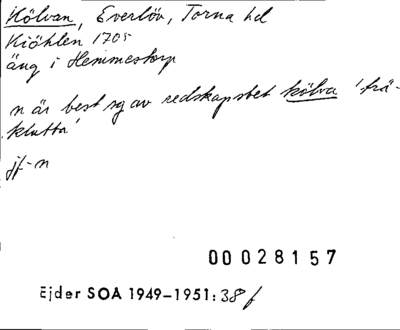 Kölvan, Everlöv, Torna hd
Kiöhlen 1705
äng i Hemmestorp
n är best sg av redskapsbet kölva 'trä-
klubba'
jf-n
00028157
Ejder SOA 1949–1951: 38 f